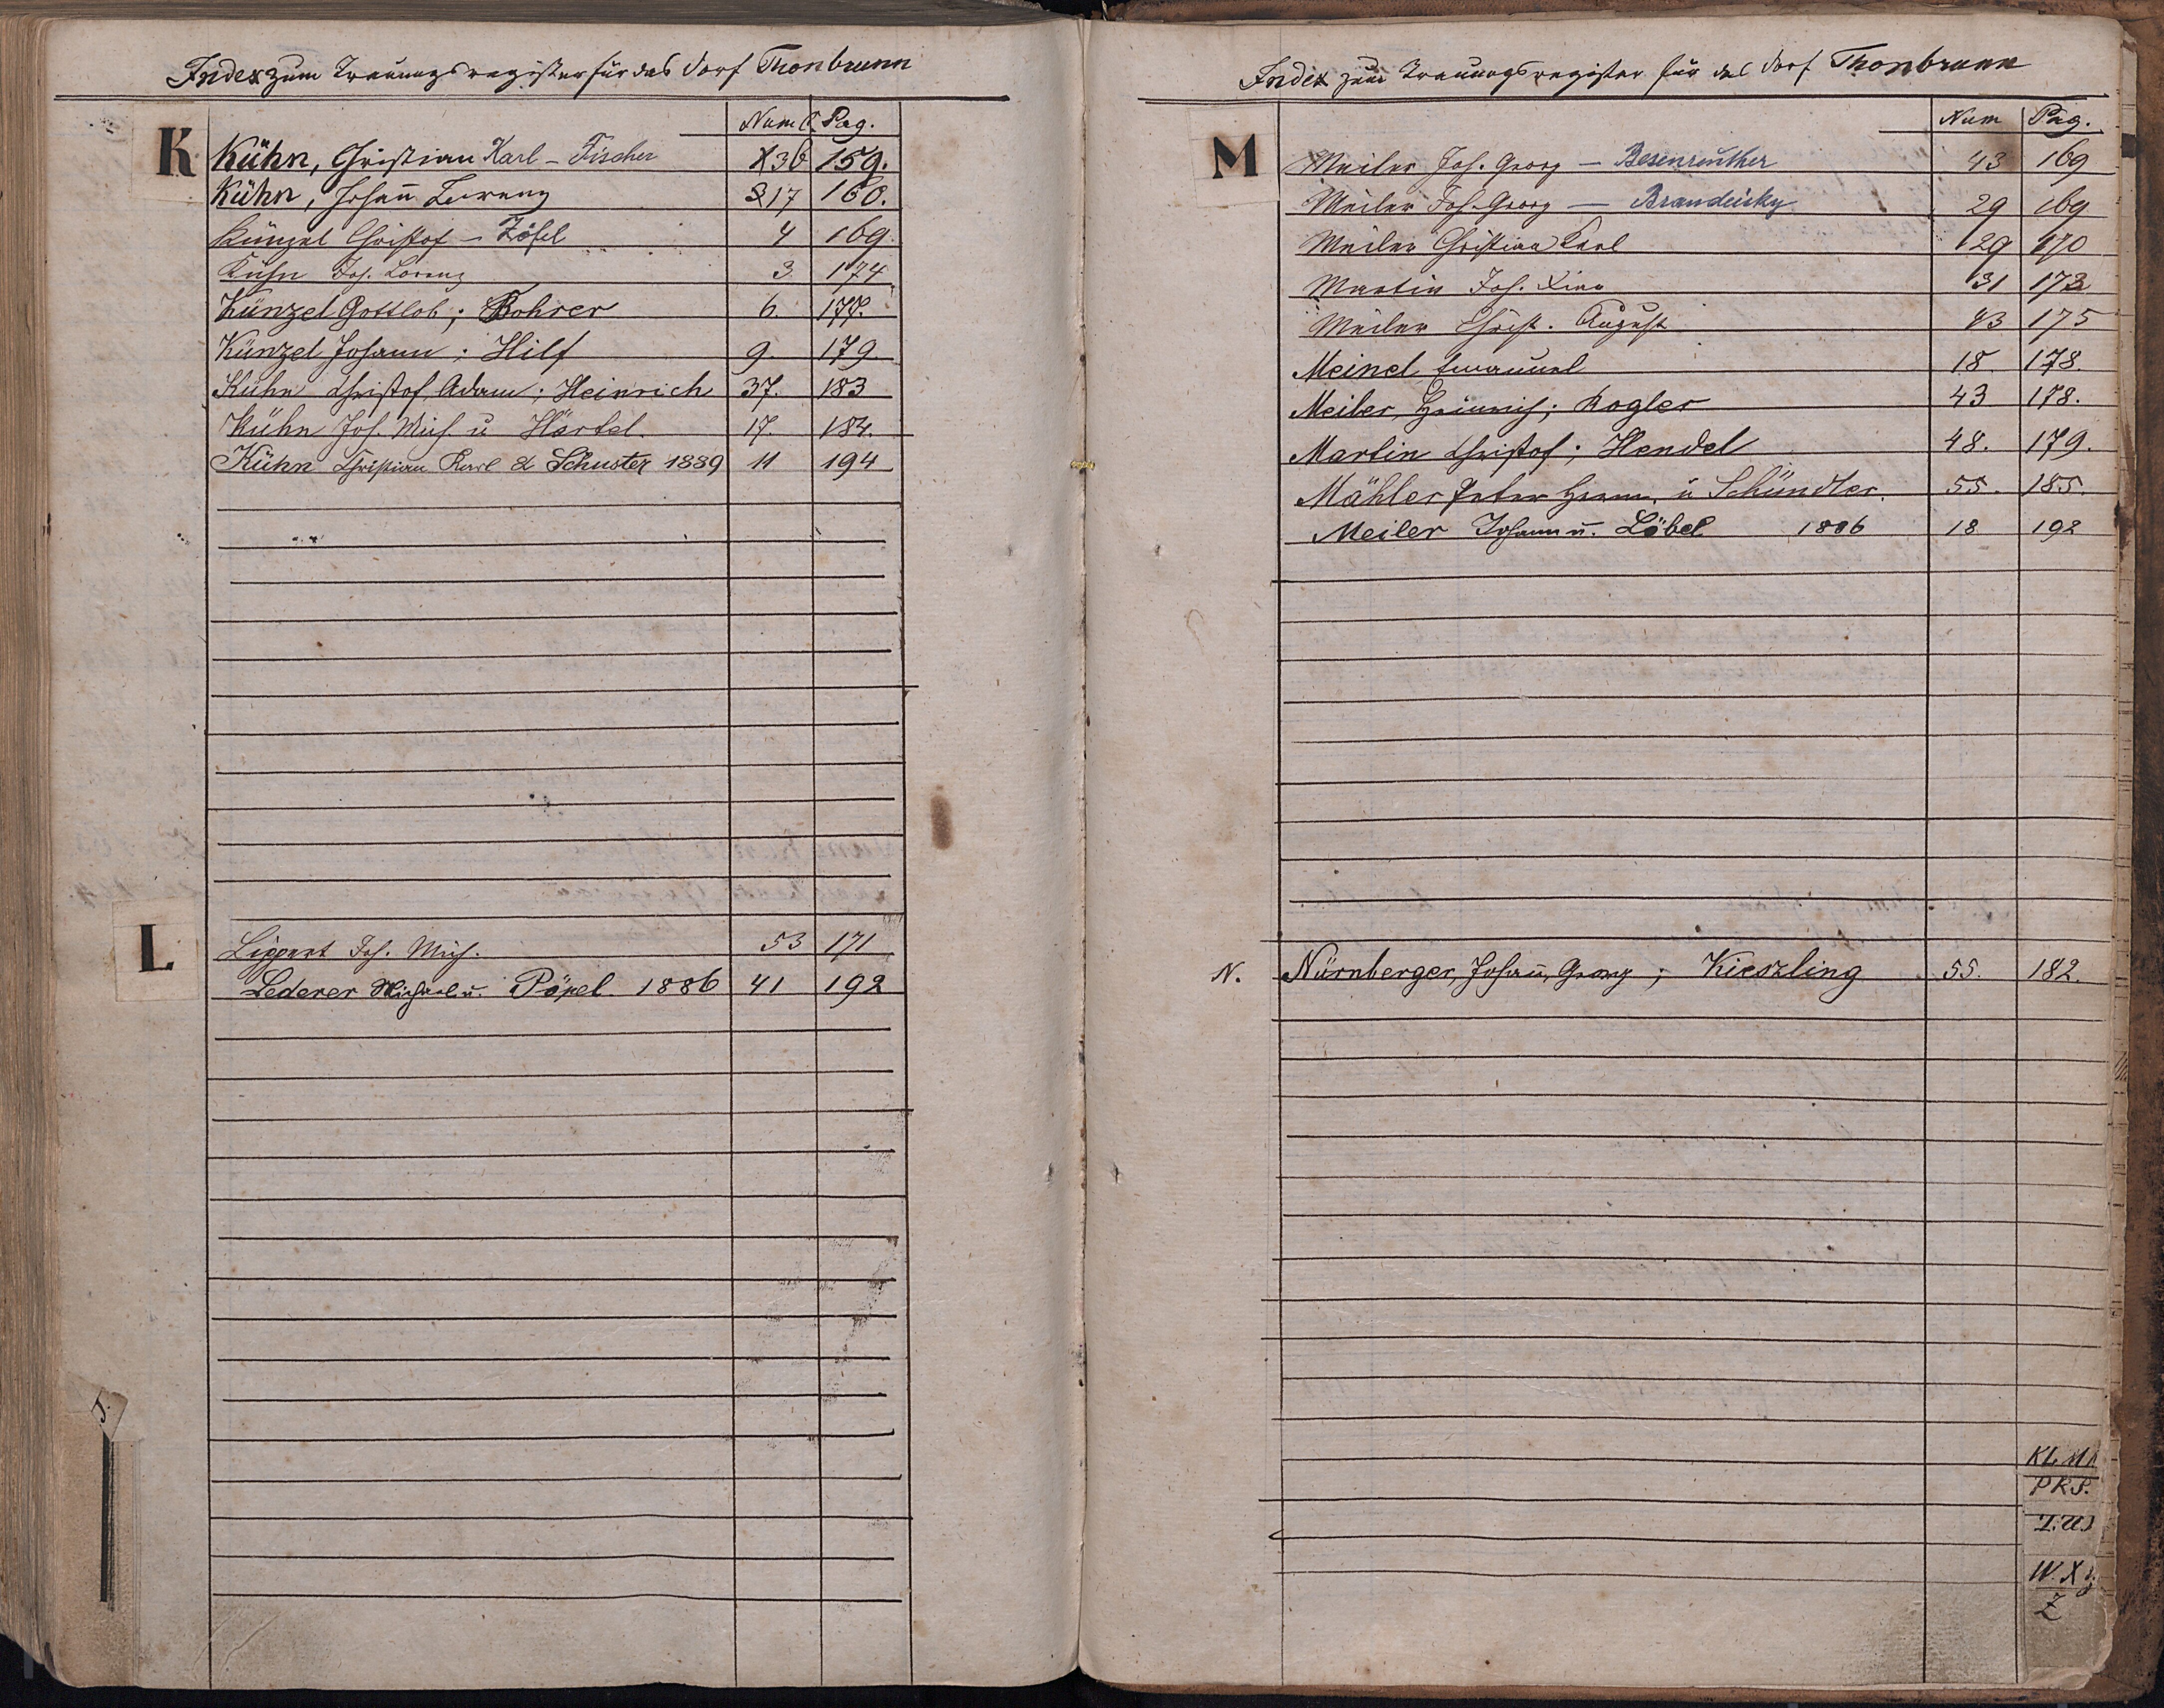 Index zum Trauungsregister für das Dorf Thonbrunn
Num Pag.
K
Kühn, Christian Karl - Fischer 36 159.
Kühn, Johann Lorenz 17 160.
Künzel Christof - Zöfel 4 169.
Kühn Joh. Lorenz 3 174
Künzel Gottlob; Bohrer 6. 177.
Künzel Johann; Hilf 9. 179.
Kühn Christof Adam; Heinrich 37. 183
Kühn Joh. Mich. u Härtel. 17. 184.
Kühn Christian Karl & Schuster 1889 11 194
L
Lippert Joh. Mich. 53 171
Lederer Michael u. Pöpel. 1886 41 192
J.
Index zum Trauungsregister für das Dorf Thonbrunn
Num Pag.
M
Meiler Joh. Georg - Besenreuther 43 169
Meiler Joh. Georg - Brandeisky 29 169
Meiler Christian Karl 29 170
Martin Joh. 31 173
Meiler Christ. August 43 175
Meinel Emanuel 18. 178.
Meiler, Heinrich; Kogler 43 178.
Martin Christof; Hendel 48. 179.
Mähler Peter Herm. u Schündler. 55. 185.
Meiler Johann u. Löbel 1886 18 192
N. Nürnberger, Johann, Georg; Kieszling 55. 182.
KL. M
P R S.
T. U.
W. X
Z